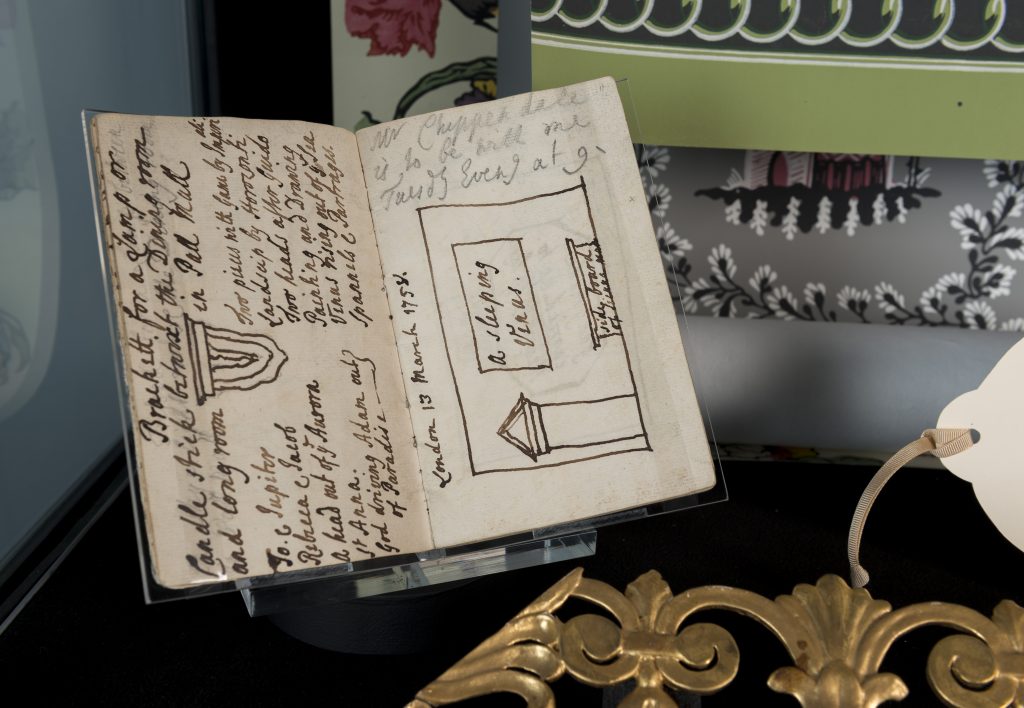 Brackett for a Lamp or
Candle stick betwixt the Dining room
and long room in Pall Mall
To E Jupiter
Rebecca & Jacob
A head out of yͤ Aurora
St Anna.
God driving Adam out
of Paradise
Two pieces with
Landscip by
Two heads after Guido
Painting and Dancing
Venus rising out of yͤ Sea
spannels & Partrages.
Mr Chippendale
is to be with me
Tuesdy Eveng at 9.
London 13 March 1758.
a sleeping
Venus.
side board